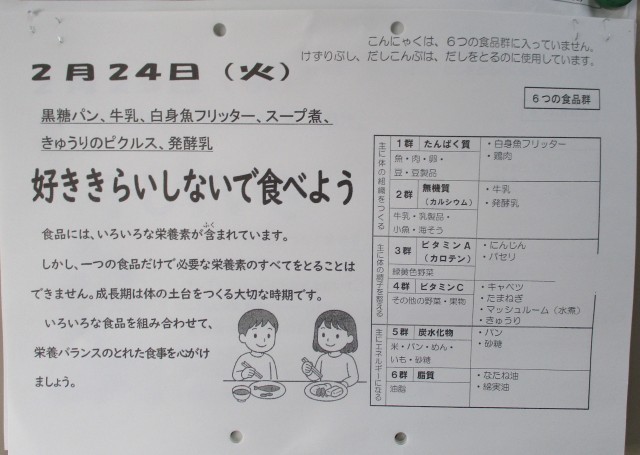 こんにゃくは、6つの食品群に入っていません。
けずりぶし、だしこんぶは、だしをとるのに使用しています。
2月24日（火）
6つの食品群
黒糖パン、牛乳、白身魚フリッター、スープ煮、
きゅうりのピクルス、発酵乳
好ききらいしないで食べよう
食品には、いろいろな栄養素が含まれています。
ふく
しかし、一つの食品だけで必要な栄養素のすべてをとることは
できません。成長期は体の土台をつくる大切な時期です。
いろいろな食品を組み合わせて、
栄養バランスのとれた食事を心がけ
ましょう。
主に体の組織をつくる
1群 たんぱく質
魚・肉・卵・
豆・豆製品
・白身魚フリッター
・鶏肉
2群 無機質
（カルシウム）
牛乳・乳製品・
小魚・海そう
・牛乳
・発酵乳
主に体の調子を整える
3群 ビタミンA
（カロテン）
緑黄色野菜
・にんじん
・パセリ
4群 ビタミンC
その他の野菜・果物
・キャベツ
・たまねぎ
・マッシュルーム（水煮）
・きゅうり
主にエネルギーになる
5群 炭水化物
米・パン・めん・
いも・砂糖
・パン
・砂糖
6群 脂質
油脂
・なたね油
・綿実油